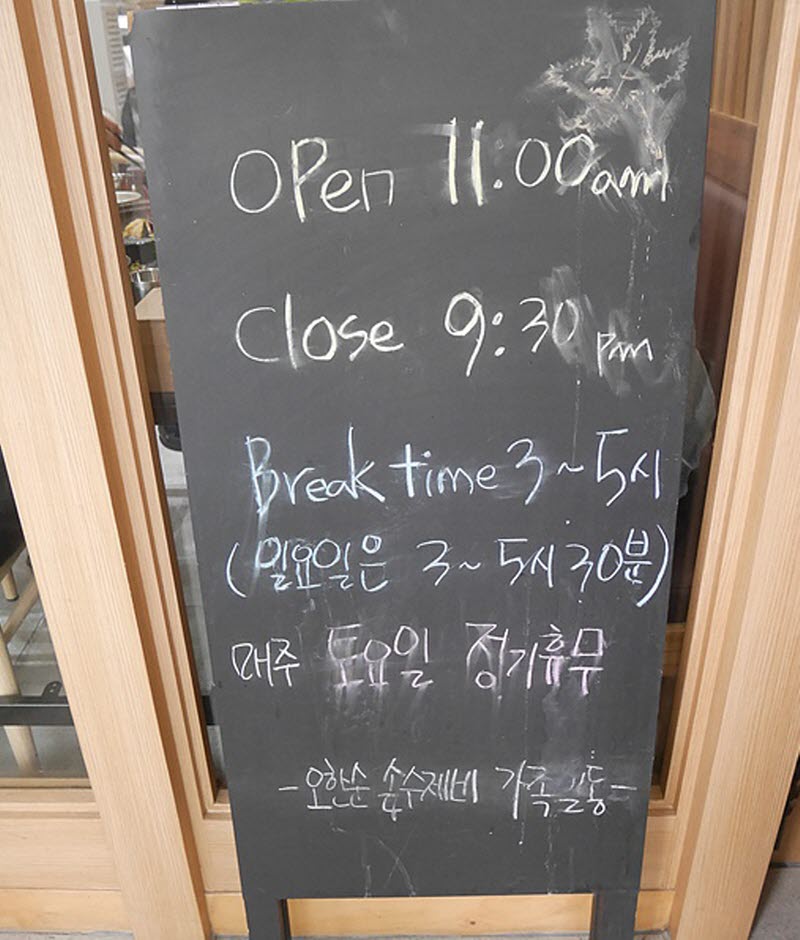 Open 11:00am
Close 9:30 pm
Break time 3~5시
(일요일은 3~5시 30분)
매주 토요일 정기휴무
-오한순 손수제비 가족일동-